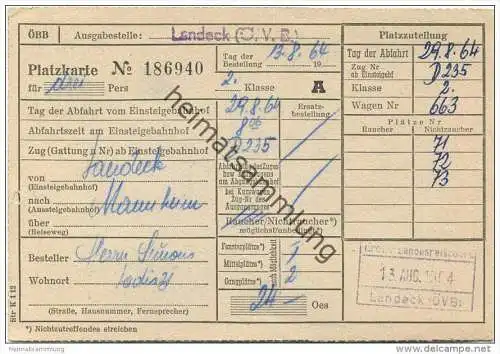 ÖBB
Ausgabestelle: Landeck (Ö.V.B.)
Platzkarte № 186940
Tag der Bestellung 13.8.64 19
für drei Pers
2. Klasse
A
Tag der Abfahrt vom Einsteigebahnhof 29.8.64
Ersatzbestellung
Abfahrtszeit am Einsteigebahnhof
Zug (Gattung u Nr) ab Einsteigebahnhof D 235
von (Einsteigebahnhof) Landeck
Abfahrt des Zuges bzw
am
bei Kurswagen Zug-Nr des Ausgangszuges
nach (Aussteigebahnhof) Mannheim
über (Reiseweg)
Raucher/Nichtraucher*) möglichst/unbedingt*)
Besteller Herrn Simons
Fensterplätze*) 1
Mittelplätze*)
Gangplätze*) 2
nach Möglichkeit
Wohnort
(Straße, Hausnummer, Fernsprecher)
24.— Oes
*) Nichtzutreffendes streichen
Str K 112
Platzzuteilung
Tag der Abfahrt 29.8.64
Zug Nr ab Einsteigebf D 235
Klasse 2.
Wagen Nr 663
Plätze Nr
Raucher Nichtraucher
71
72
73
13. AUG. 1964
Landeck (ÖVB)
heimatsammlung
heimatsammlung